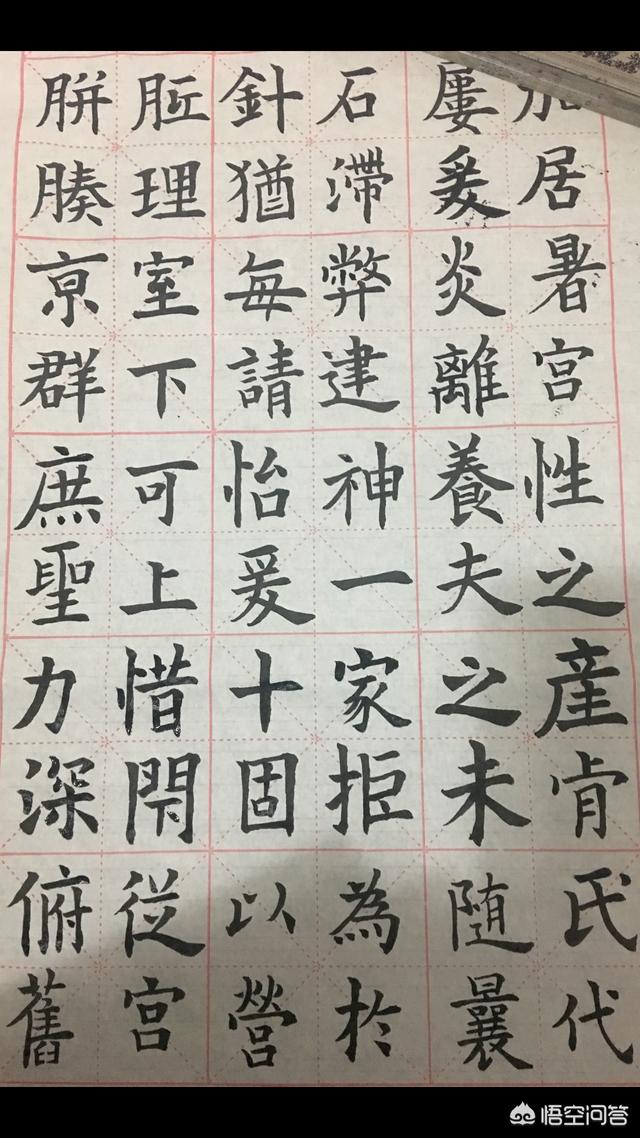 胼胝針石屢加
腠理猶滯爰居
京室每弊炎暑
群下請建離宮
庶可怡神養性
聖上爰一夫之
力惜十家之產
深閇固拒未肯
俯從以為隨氏
舊宮營於曩代
悟空问答